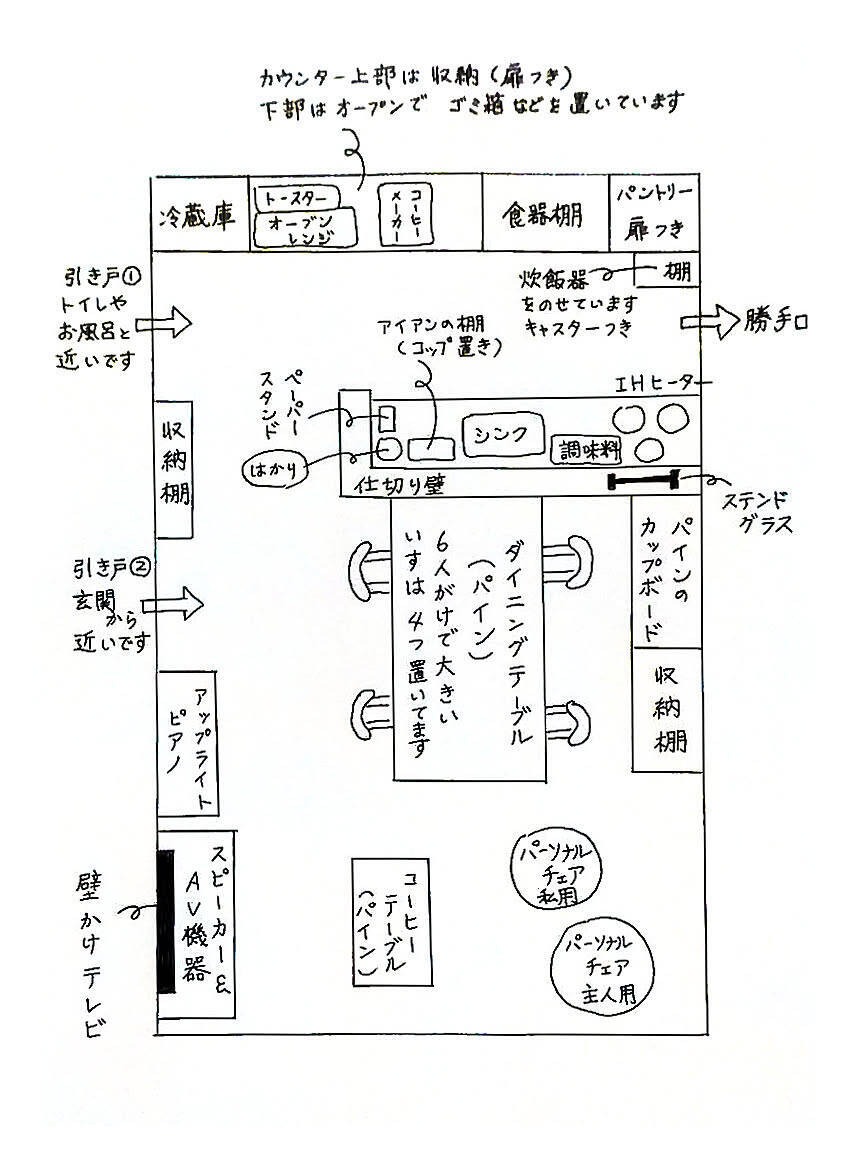 カウンター上部は収納(扉つき)
下部はオープンで ゴミ箱などを置いています
冷蔵庫
トースター
オーブン
レンジ
コーヒー
メーカー
食器棚
パントリー
扉つき
引き戸①
トイレや
お風呂と
近いです
炊飯器
をのせています
キャスターつき
棚
勝手口
アイアンの棚
(コップ置き)
IHヒーター
ペーパー
スタンド
はかり
シンク
調味料
収納棚
仕切り壁
ステンド
グラス
引き戸②
玄関
から
近いです
ダイニングテーブル
(パイン)
6人がけで大きい
いすは4つ置いてます
パインの
カップボード
収納棚
アップライト
ピアノ
壁かけテレビ
スピーカー&
AV機器
コーヒー
テーブル
(パイン)
パーソナル
チェア
私用
パーソナル
チェア
主人用